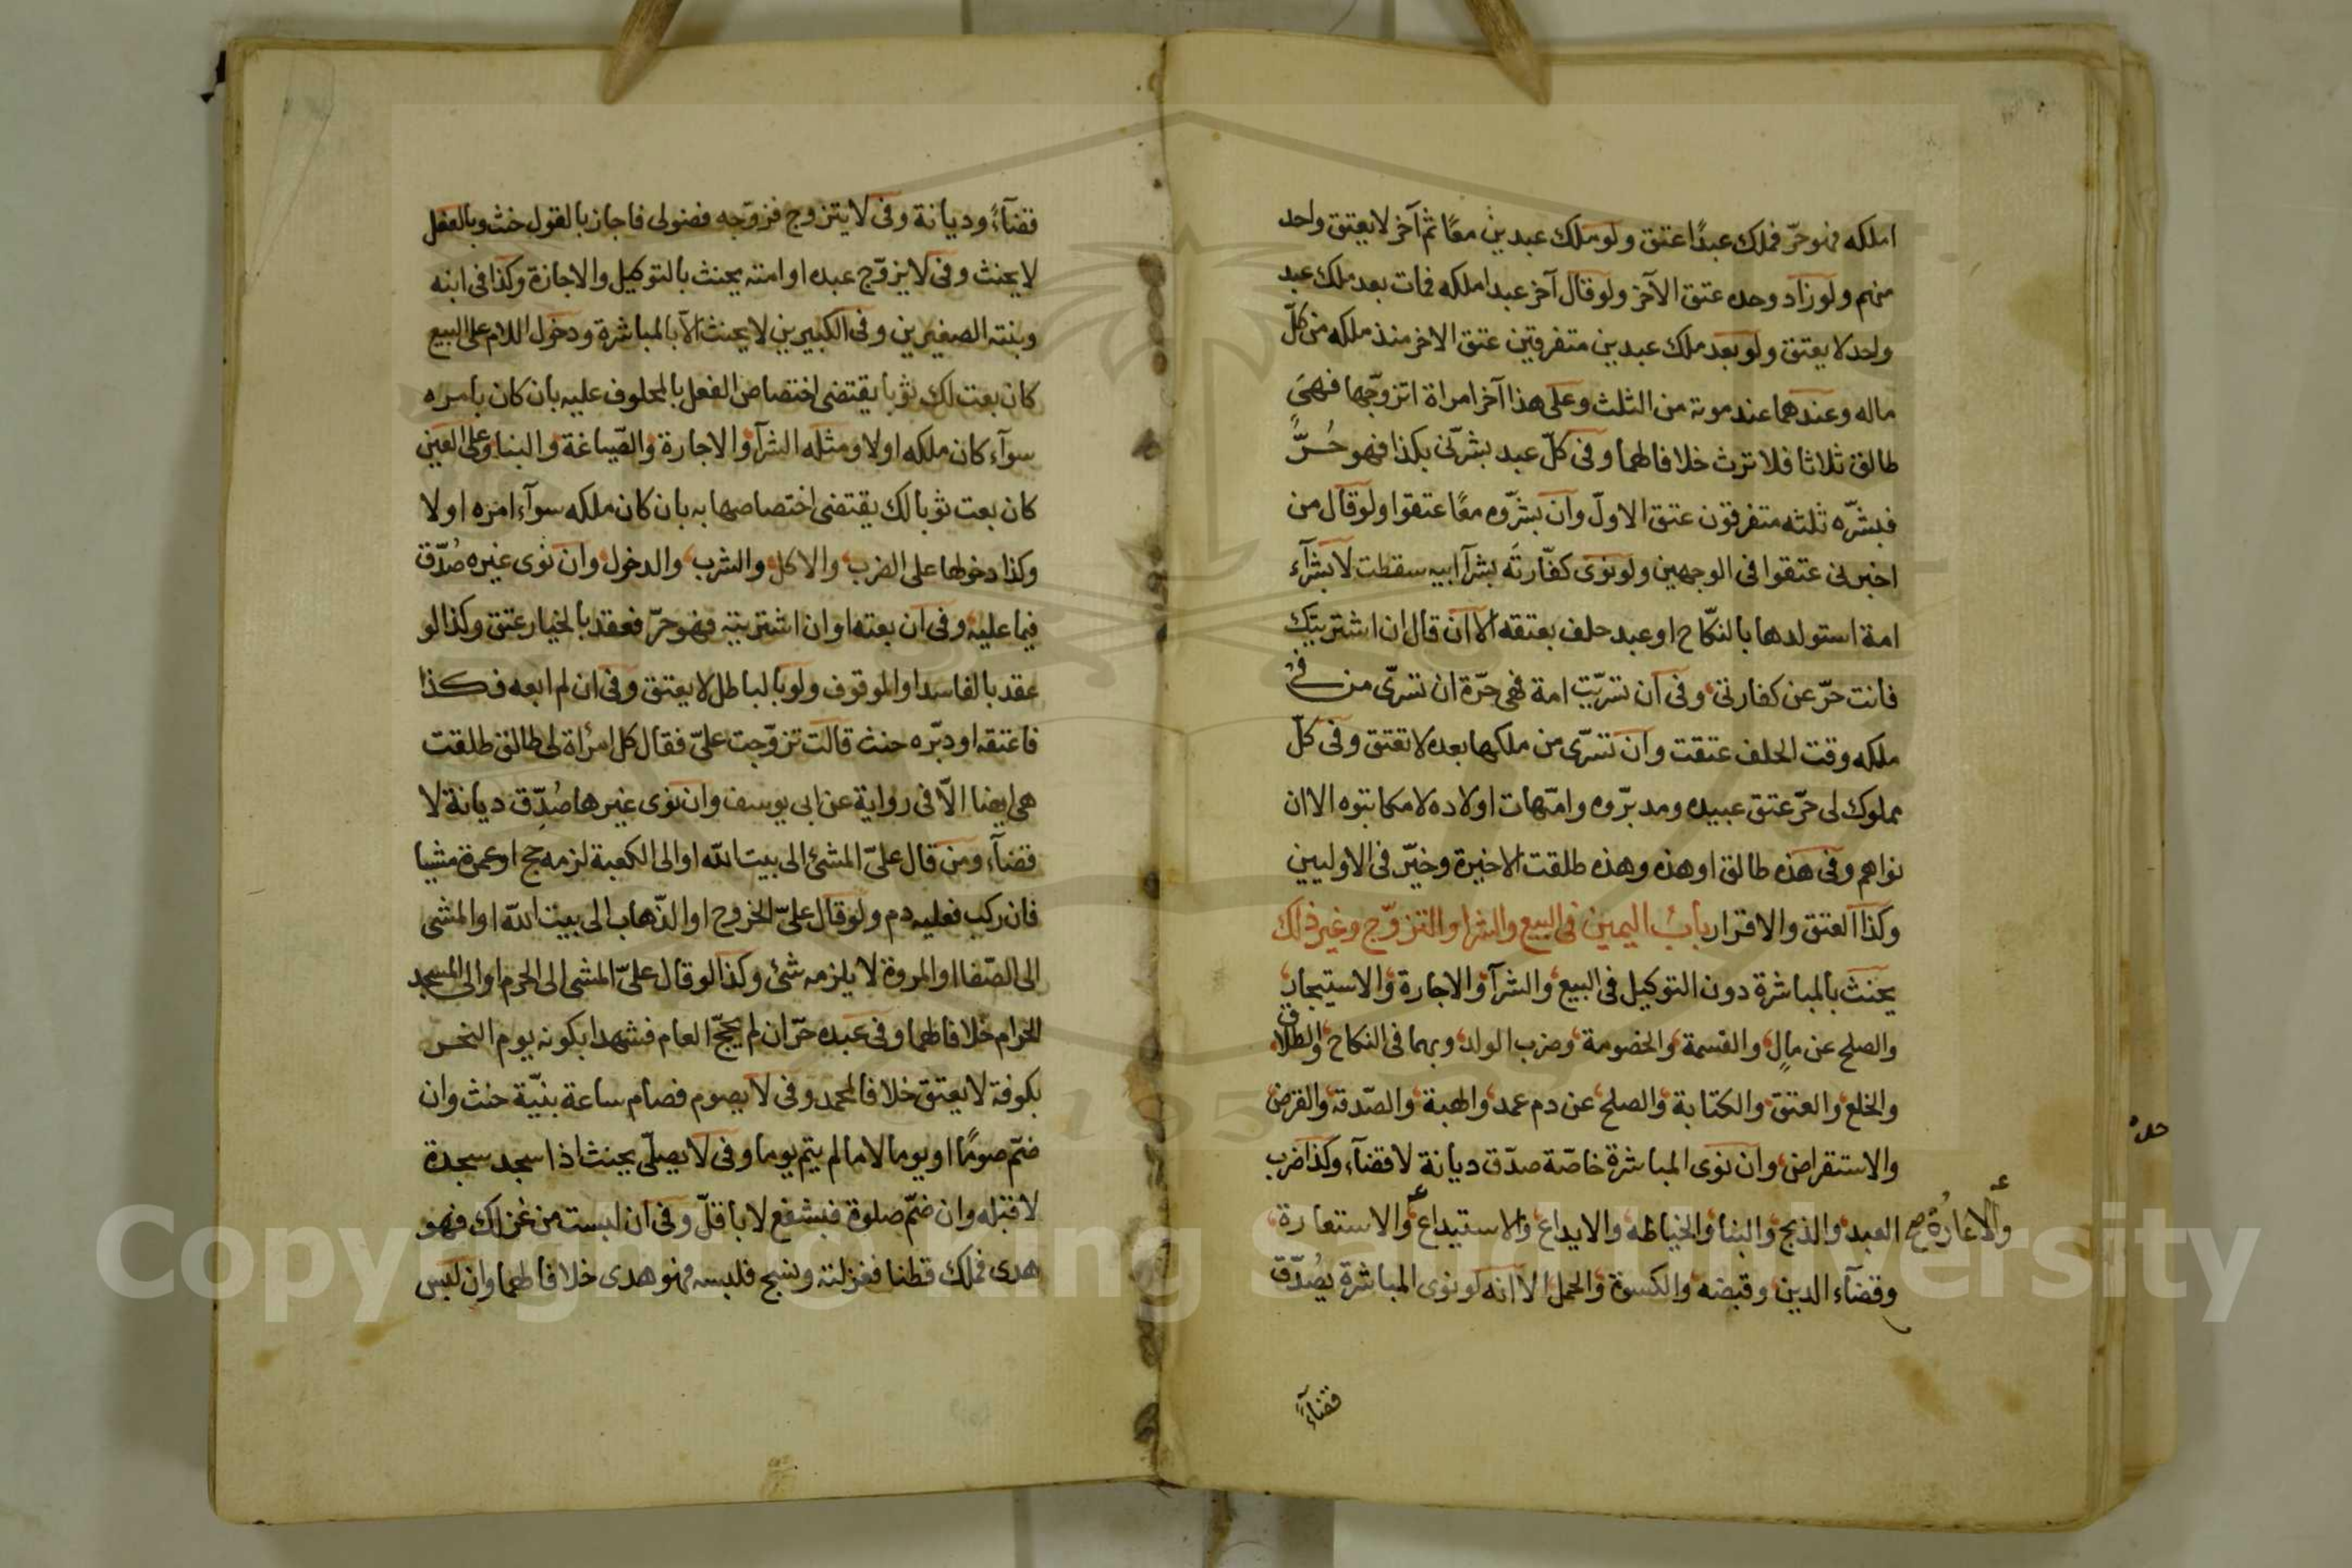 املكه فهو حرّ فملك عبدًا عتق ولو ملك عبدين معًا ثم آخر لا يعتق واحد
منهم ولو زاد وحده عتق الآخر ولو قال آخر عبد املكه فمات بعد ملك عبد
واحد لا يعتق ولو بعد ملك عبدين متفرقين عتق الاخر منذ ملكه من كلّ
ماله وعندهما عند موته من الثلث وعلى هذا آخر امراة اتزوّجها فهي
طالق ثلاثا فلا ترث خلافا لهما وفى كلّ عبد بشرنى بكذا فهو حُرٌّ
فبشّره ثلثه متفرقون عتق الاولّ وان بشّروه معًا عتقوا ولو قال من
اخبرنى عتقوا فى الوجهين ولو نوى كفّارته بشرآ ابيه سقطت لا بشرآء
امة استولدها بالنكّاح او عبد حلف بعتقه الا ان قال ان اشتريتك
فانت حرّ عن كفارتى وفى ان تسرّيت امة فهى حرّة ان تسرّى من فى
ملكه وقت الحلف عتقت وان تسرّى من ملكها بعده لا تعتق وفى كلّ
مملوك لى حرّ عتق عبيده ومدبّروه وامّهات اولاده لا مكاتبوه الا ان
نواهم وفى هذه طالق او هذه وهذه طلقت الاخيرة وخيّر فى الاوليين
وكذا العتق والاقرار باب اليمين فى البيع والشرا والتزوّج وغير ذلك
يحنث بالمباشرة دون التوكيل فى البيع والشرآ والاجارة والاستيجار
والصلح عن مالٍ والقسمة والخصومة وضرب الولد وبهما فى النكاح والطلاق
والخلع والعتق والكتابة والصلح عن دم عمد والهبة والصّدقة والقرض
والاستقراض وان نوى المباشرة خاصّة صدّق ديانة لا قضآء وكذا ضرب
العبد والذبح والبنا والخياطه والايداع والاستيداع والاستعارة
والاعارة صح
وقضآء الدين وقبضه والكسوة والحمل الا انه لو نوى المباشرة يصُدّق
قضآءً
قضآءً وديانة وفى لا يتزوج فزوّجه فضولى فاجاز بالقول حنث وبالفعل
لا يحنث وفى لا يزوّج عبده او امته يحنث بالتوكيل والاجازة وكذا فى ابنه
وبنته الصغيرين وفى الكبيرين لا يحنث الّا بالمباشرة ودخول اللام على البيع
كان بعت لك ثوبا يقتضى اختصاص الفعل بالمحلوف عليه بان كان بامره
سوآء كان ملكه اولا ومثله الشرآ والاجارة والصّياغة والبنا وعلى العين
كان بعت ثوبا لك يقتضى اختصاصها به بان كان ملكه سوآء امره اولا
وكذا دخولها على الضرب والاكل والشرب والدخول وان نوى غيره صُدّق
فيما عليه وفى ان بعته او ان اشتريته فهو حرّ فعقد بالخيار عتق وكذا لو
عقد بالفاسد او الموقوف ولو بالباطل لا يعتق وفى ان لم ابعه فكذا
فاعتقه او دبّره حنث قالت تزوّجت علىّ فقال كل امرأة لى طالق طلقت
هى ايضا الاّ فى رواية عن ابى يوسف وان نوى غيرها صُدّق ديانة لا
قضآء ومن قال علىّ المشى الى بيت اللّه او الى الكعبة لزمه حج او عمرة مشيا
فان ركب فعليه دم ولو قال علىّ الخروج او الذّهاب الى بيت اللّه او المشى
الى الصّفا او المروة لا يلزمه شئ وكذا لو قال علىّ المشى الى الحرم او الى المسجد
الحرام خلافا لهما وفى عبده حرّ ان لم يحجّ العام فشهدا بكونه يوم النحر
بكوفة لا يعتق خلافا لمحمد وفى لا يصوم فصام ساعة بنيّة حنث وان
ضمّ صومًا او يوما لا ما لم يتم يوما وفى لا يصلّى يحنث اذا سجد سجدة
لا قبله وان ضمّ صلوة فبشفع لا باقلّ وفى ان لبست من غزلك فهو
هدى فملك قطنا فغزلته ونسج فلبسه فهو هدى خلافا لهما وان لبس